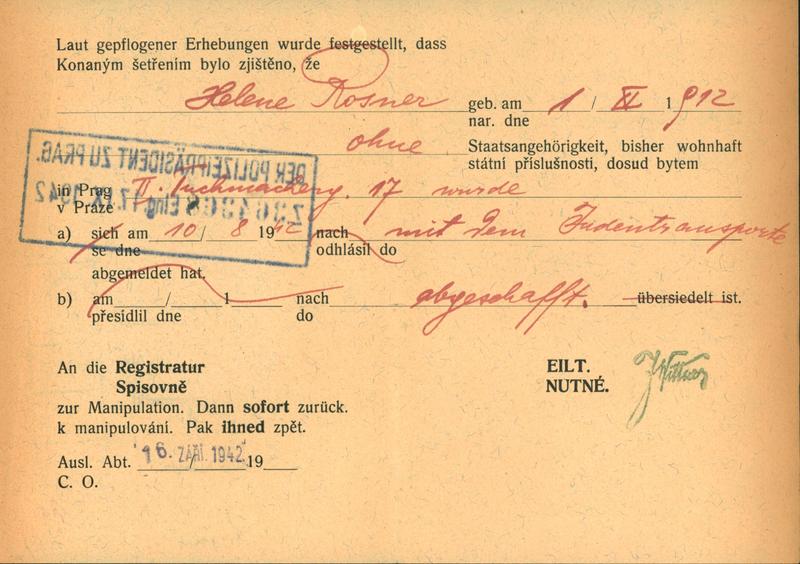 Laut gepflogener Erhebungen wurde festgestellt, dass
Konaným šetřením bylo zjištěno, že
Helene Rosner geb. am 1 / II 1912
nar. dne
ohne Staatsangehörigkeit, bisher wohnhaft
státní příslušnosti, dosud bytem
DER POLIZEIPRÄSIDENT ZU PRAG.
in Prag II. Tuchmacherg. 17 wurde
v Praze
Eing. 17. IX. 1942
a) sich am 10 / 8 1942 nach mit dem Judentransporte
se dne odhlásil do
abgemeldet hat.
b) am / 1 nach abgeschafft. übersiedelt ist.
přesídlil dne do
An die Registratur EILT.
Spisovně NUTNÉ.
zur Manipulation. Dann sofort zurück.
k manipulování. Pak ihned zpět.
Ausl. Abt. 16. ZÁŘÍ. 1942 / 19
C. O.